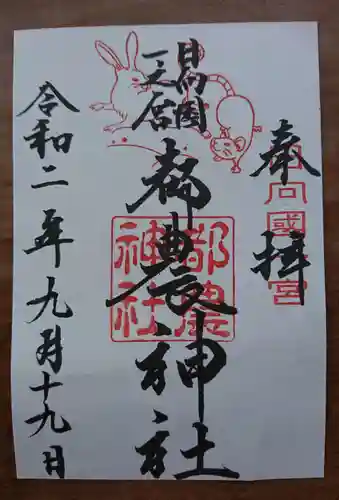 奉拝
日向國
一之宮
都農神社
都農
神社
令和二年九月十九日